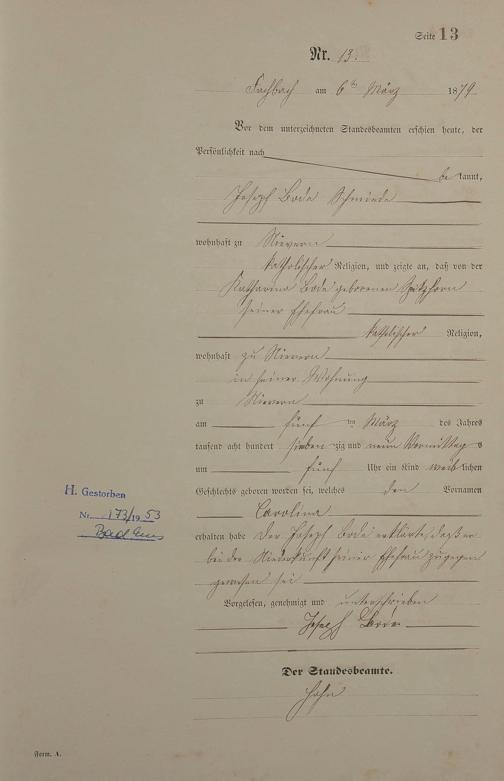 Seite 13
Nr. 13.
Fachbach am 6ten März 1879
Vor dem unterzeichneten Standesbeamten erschien heute, der
Persönlichkeit nach
be kannt,
Joseph Bode Schmiede
wohnhaft zu Nievern
katholischer Religion, und zeigte an, daß von der
Katharina Bode geborenen Spitzhorn
seiner Ehefrau
katholischer Religion,
wohnhaft zu Nievern
in seiner Wohnung
zu Nievern
am fünf ten März des Jahres
tausend acht hundert sieben zig und neun Vormittag s
um fünf Uhr ein Kind weib lichen
Geschlechts geboren worden sei, welches den Vornamen
Carolina
erhalten habe Der Joseph Bode erklärte, daß er
bei der Niederkunft seiner Ehefrau zugegen
gewesen sei
Vorgelesen, genehmigt und unterschrieben
Joseph
Der Standesbeamte.
Hahn
H. Gestorben
Nr. 173/1953
Bad Ems
Form. A.